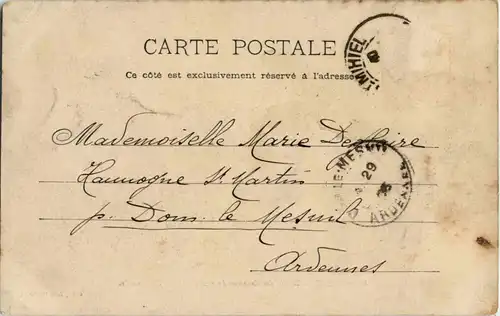 CARTE POSTALE
Ce côté est exclusivement réservé à l'adresse
MIHIEL
Mademoiselle Marie
Hannogne St Martin
LE-MESNIL
29
ARDENNES
p. Dom le Mesnil
Ardennes